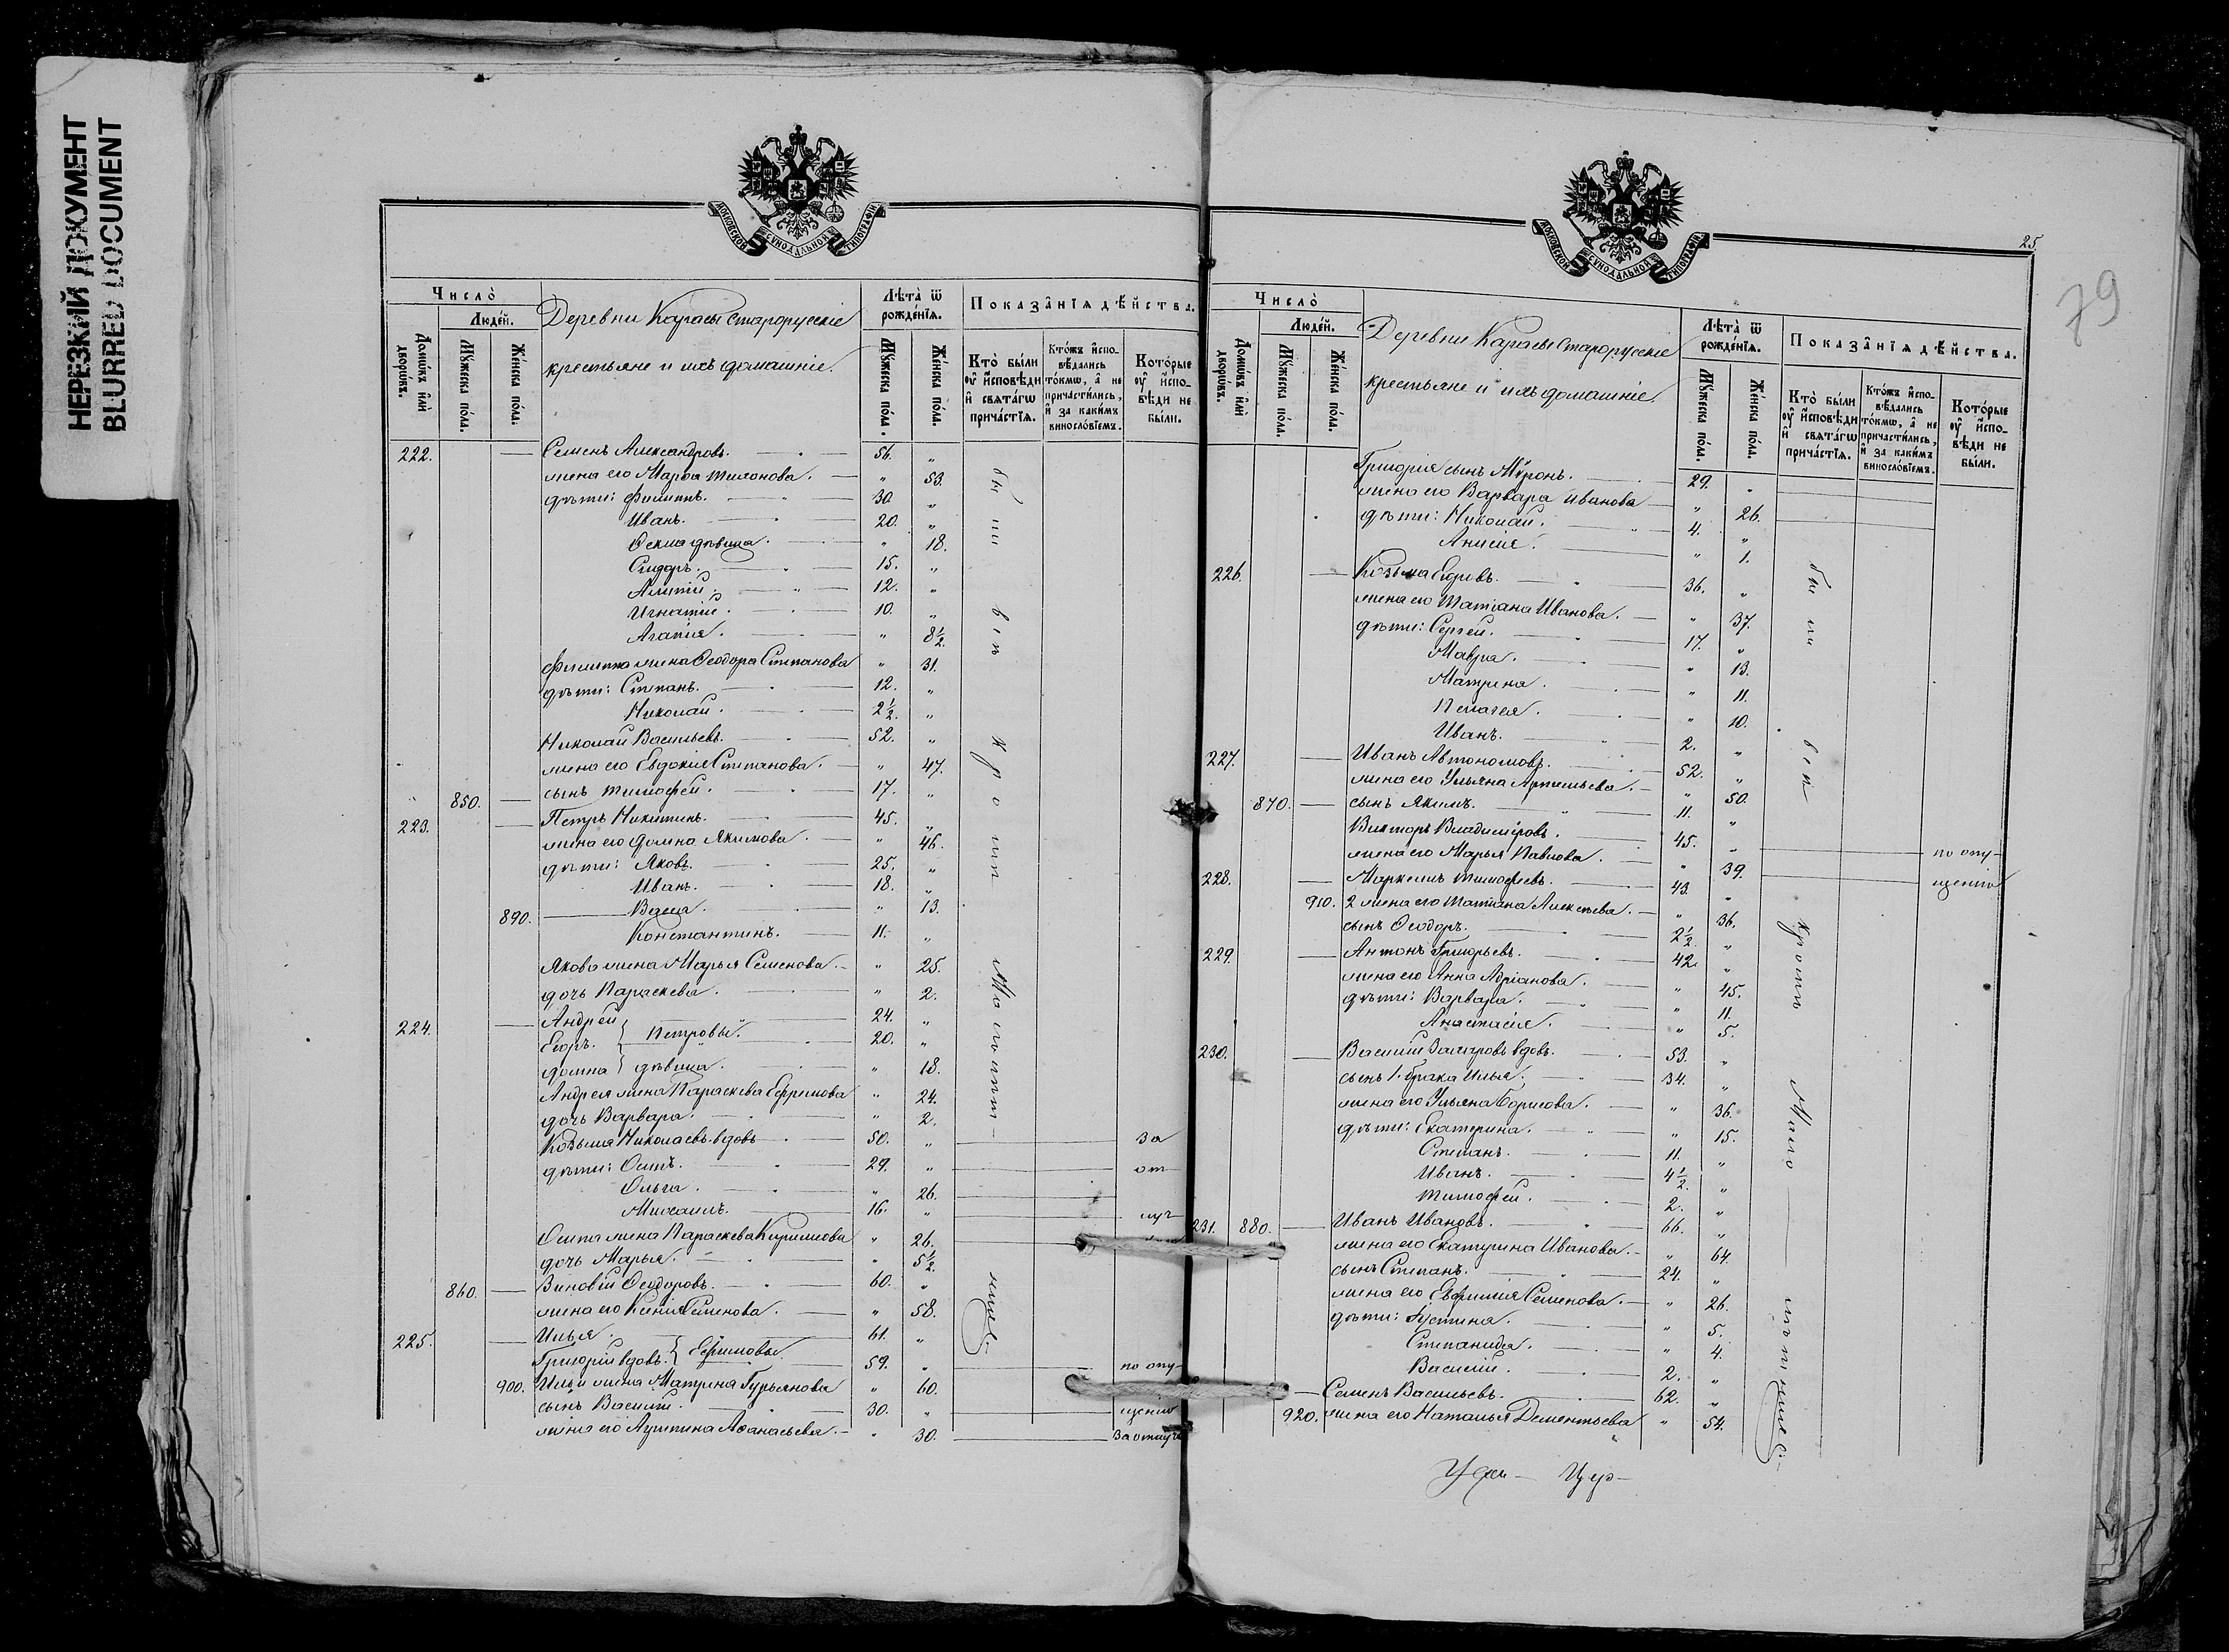 НЕРЕЗКИЙ ДОКУМЕНТ
BLURRED DOCUMENT
МОСКОВСКОЙ СѴНОДАЛЬНОЙ ТИПОГРАФІИ
Число̀
Люде́й.
Домѡ́въ и҆лѝ дворѡ́въ.
Мꙋ́жеска по́ла.
Же́нска по́ла.
Деревни Карасы Старорусскіе
крестьяне и ихъ домашніе.
Лѣ́та ѿ рожде́нїѧ.
Мꙋ́жеска по́ла.
Же́нска по́ла.
Показа̂нїѧ дѣ́йства.
Кто̀ бы́ли оу҆ и҆сповѣди и҆ свѧта́гѡ прича́стїѧ.
Кто́жъ и҆спо-вѣдались то́кмѡ, а҆ не причасти́лись, и҆ за каки́мъ винослові́емъ.
Кото́рые оу҆ и҆спо-вѣди не бы́ли.
222. Семенъ Александровъ. 56. „
жена его Марѳа Тихонова. „ 53.
дѣти: Филиппъ. 30. „
Иванъ. 20. „
Ѳекла дѣвица. „ 18.
Сидоръ. 15. „
12. „
Игнатій. 10. „
Агапія. „ 8½
Филиппа жена Ѳеодора Степанова „ 31.
дѣти: Степанъ. 12. „
Николай. 2½. „
Николай Васильевъ. 52. „
жена его Евдокія Степанова. „ 47.
850. сынъ Тимофей. 17. „
223. Петръ Никитинъ. 45. „
жена его Домна Якимова. „ 46.
дѣти: Яковъ. 25. „
Иванъ. 18. „
890. Васса. „ 13.
Константинъ. 11. „
Якова жена Марья Семенова. „ 25.
дочь Параскева. „ 2.
224. Андрей 24. „
Егоръ. } Петровы. 20. „
Домна } дѣвица. „ 18.
Андрея жена Параскева Ефремова „ 24.
дочь Варвара. „ 2.
Козьма Николаевъ вдовъ 50. „ за
дѣти: Осипъ. 29. „ от
Ольга. „ 26.
Михаилъ. 16. „ луч
Осипа жена Параскева Кириллова „ 26.
дочь Марья. „ 5½.
860. Зиновій Ѳеодоровъ. 60. „
жена его Ксенія Семенова. „ 58.
225. Илья. 61. „
Григорій вдовъ. } Ефимовы. 59. „ по опу-
900. Ильи жена Матрена Гурьянова „ 60.
сынъ Василій. 30. „ щенію
жена его Аѳанасьева. „ 30. За отлуч
были
вси
кромѣ
Малолѣт-
нихъ
МОСКОВСКОЙ СѴНОДАЛЬНОЙ ТИПОГРАФІИ
25.
79
Число̀
Люде́й.
Домѡ́въ и҆лѝ дворѡ́въ.
Мꙋ́жеска по́ла.
Же́нска по́ла.
Деревни Карасы Старорусскіе
крестьяне и ихъ домашніе.
Лѣ́та ѿ рожде́нїѧ.
Мꙋ́жеска по́ла.
Же́нска по́ла.
Показа̂нїѧ дѣ́йства.
Кто̀ бы́ли оу҆ и҆сповѣди и҆ свѧта́гѡ прича́стїѧ.
Кто́жъ и҆спо-вѣдались то́кмѡ, а҆ не причасти́лись, и҆ за каки́мъ винослові́емъ.
Кото́рые оу҆ и҆спо-вѣди не бы́ли.
Григорія сынъ Мѵронъ. 29. „
жена его Варвара Иванова „ 26.
дѣти: Николай. 4. „
Анисія. „ 1.
226. Козьма Егоровъ. 36. „
жена его Татіана Иванова. „ 37.
дѣти: Сергей. 17. „
Мавра. „ 13.
Матрена. „ 11.
Пелагея. „ 10.
Иванъ. 2. „
227. Иванъ Автономовъ. 52. „
жена его Ульяна Артемьева. „ 50.
870. сынъ Якимъ. 11. „
Викторъ Владиміровъ. 45. „
жена его Марья Павлова. „ 39. по опу-
228. Маркеллъ Тимофеевъ. 43. „ щенію
910. 2 жена его Татіана Алексѣева. „ 36.
сынъ Ѳеодоръ. 2½. „
229. Антонъ Григорьевъ. 42. „
жена его Анна Адріанова. „ 45.
дѣти: Варвара. „ 11.
Анастасія. „ 5.
230. Василій вдовъ. 53. „
сынъ 1. брака Илья. 34. „
жена его Ульяна Борисова. „ 36.
дѣти: Екатерина. „ 15.
Степанъ. 11. „
Иванъ. 4½. „
Тимофей. 2. „
231. 880. Иванъ Ивановъ. 66. „
жена его Екатерина Иванова. „ 64.
сынъ Степанъ. 24. „
жена его Евфимія Семенова. „ 26.
дѣти: Іустина. „ 5.
Степанида. „ 4.
Василій. 2. „
Семенъ Васильевъ. 62. „
920. жена его Наталья Дементьева „ 54.
были
вси
кромѣ
Мало-
лѣтнихъ